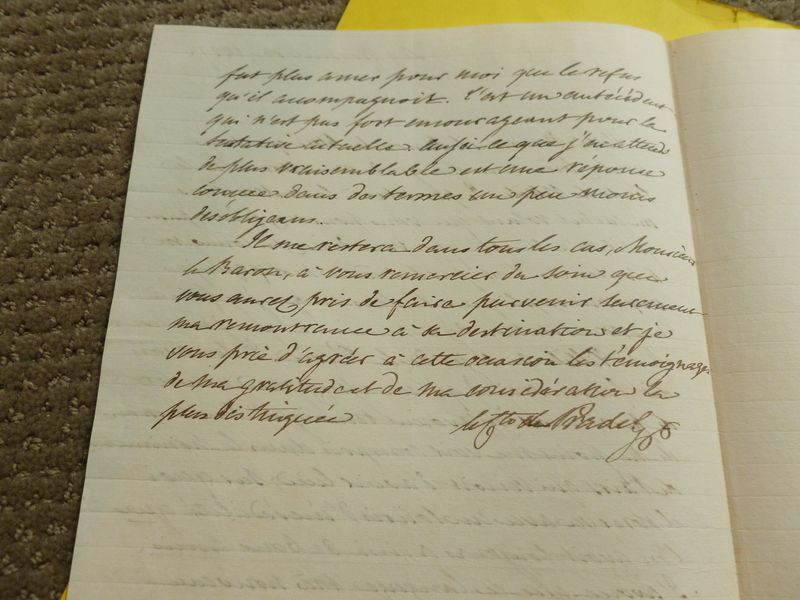 fut plus amer pour moi que le refus
qu'il accompagnoit. C'est un antécédent
qui n'est pas fort encourageant pour la
tentative actuelle. Aussi ce que j'en attend
de plus vraisemblable est une réponse
conçue dans des termes un peu moins
désobligeans.
Il me restera dans tous les cas, Monsieur
le Baron, à vous remercier du soin que
vous aurez pris de faire parvenir surement
ma remontrance à sa destination et je
vous prie d'agréer à cette occasion les témoignages
de ma gratitude et de ma considération la
plus distinguée
le Cte de Pradel